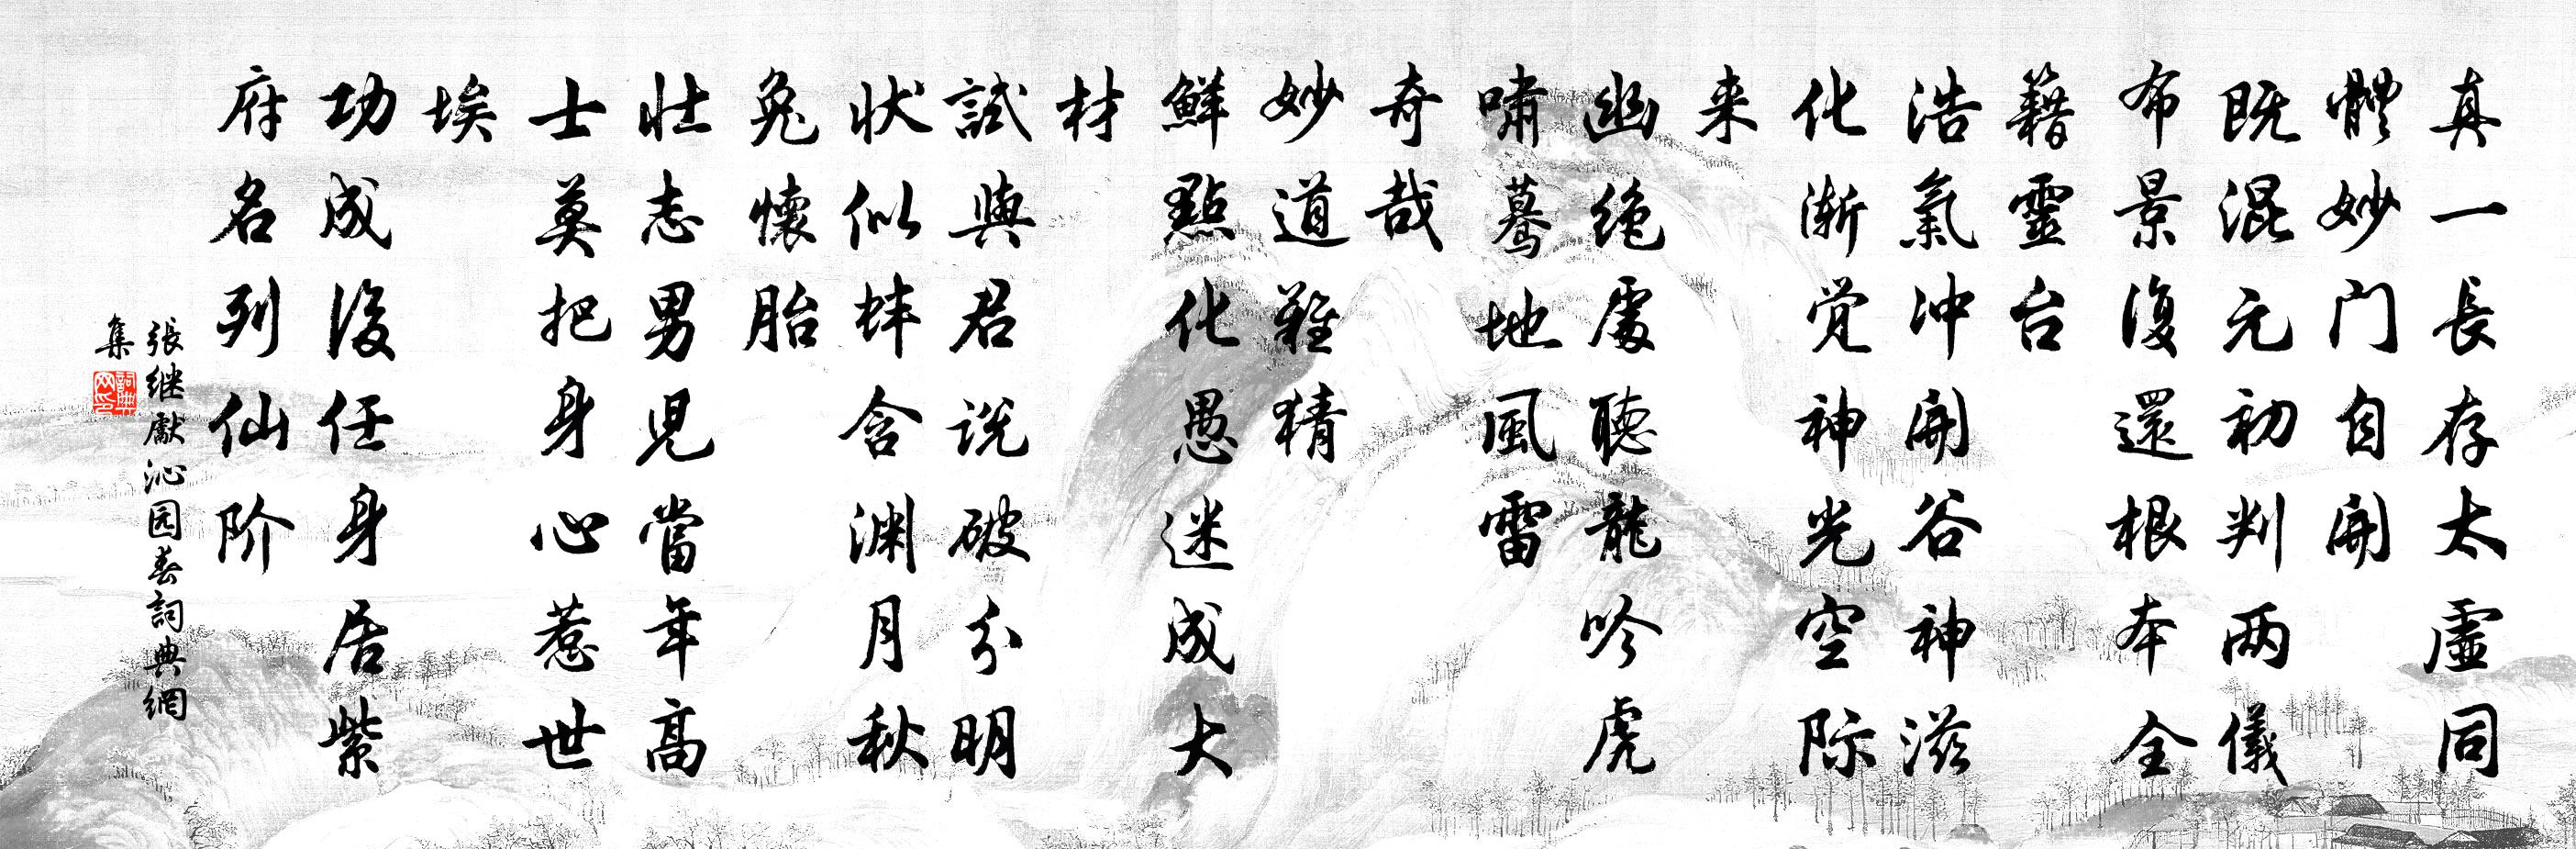 真一長存太虛同
體妙门自開
既混元初判两儀
布景復還根本全
籍靈台
浩氣冲開谷神滋
化渐觉神光空际
来
幽绝處聽龍吟虎
嘯蓦地風雷
奇哉
妙道難猜
鮮點化愚迷成大
材
試與君说破分明
状似蚌含渊月秋
兔懷胎
壮志男児當年高
士莫把身心惹世
埃
功成後任身居紫
府名列仙阶
張继獻沁园春詞典網
集
詞典网印